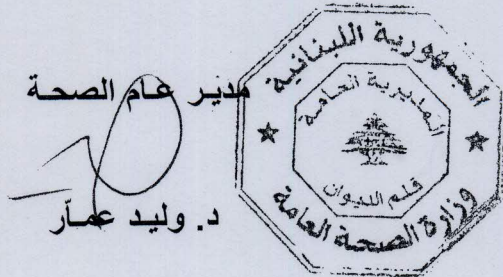 مدير عام الصحة
د. وليد عمار
الجمهورية اللبنانية
المديرية العامة
قلم الديوان
وزارة الصحة العامة